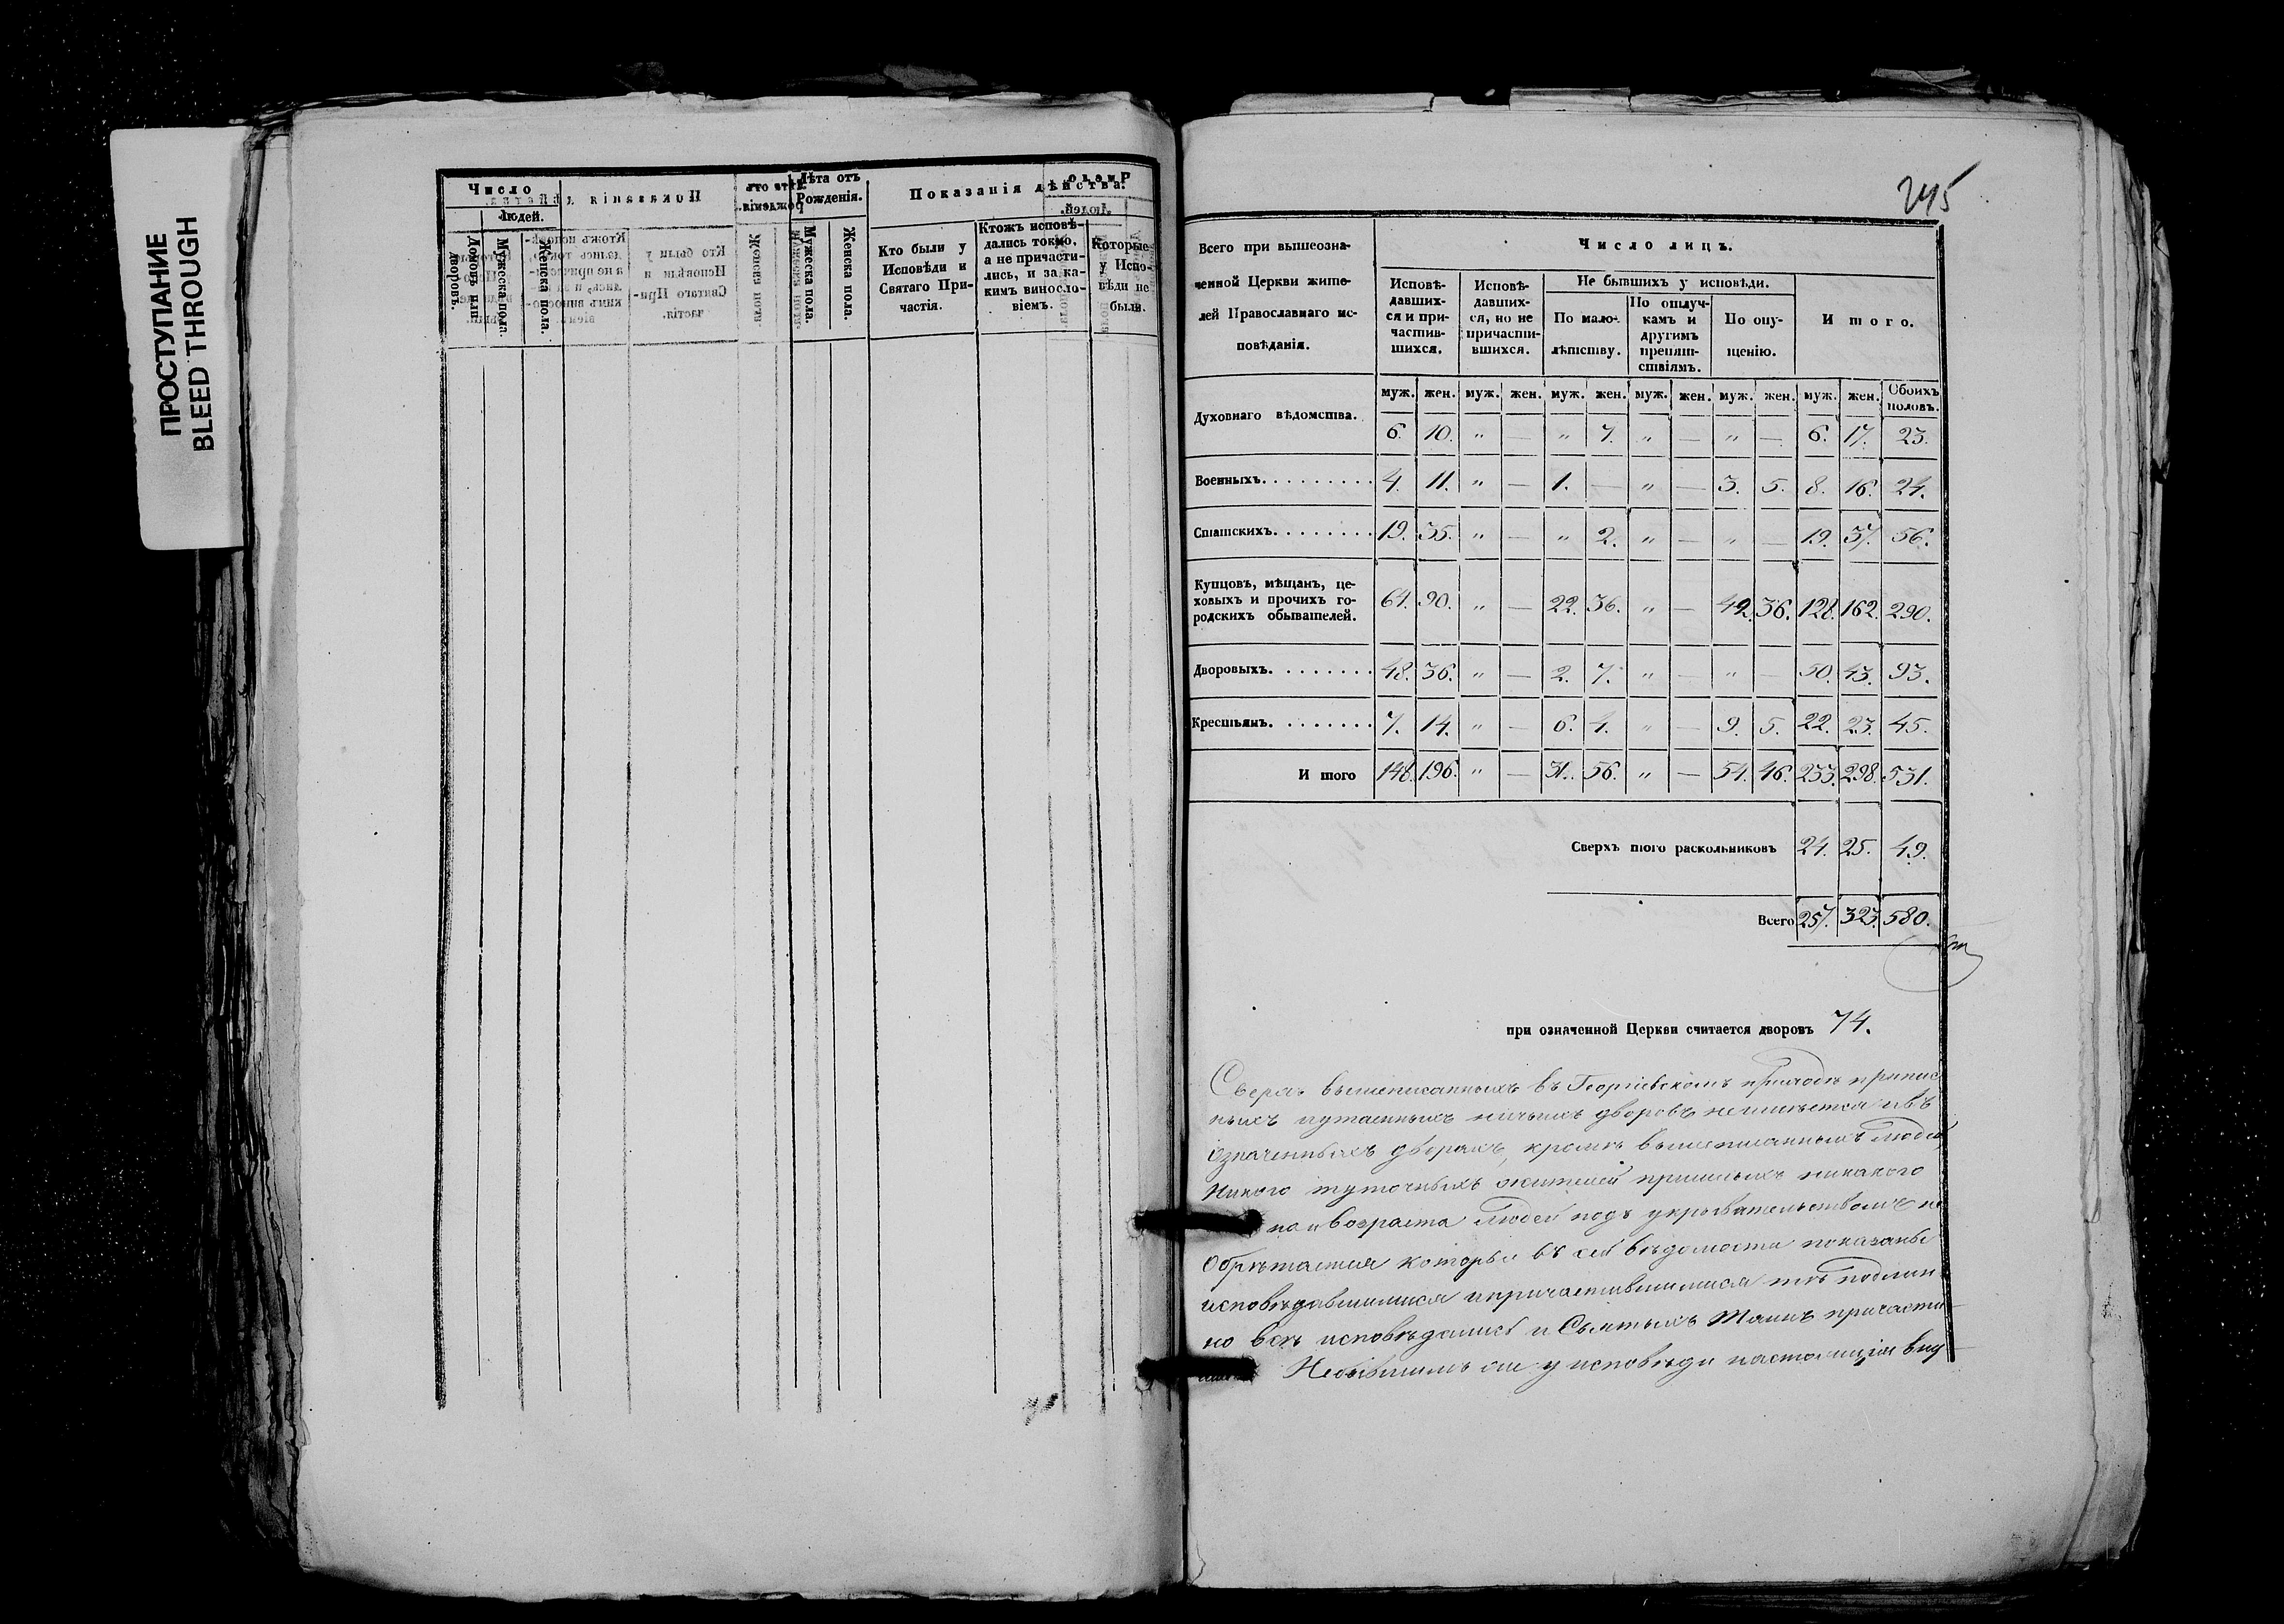 ПРОСТУПАНИЕ
BLEED THROUGH
Число
Людей.
Домовъ или дворовъ.
Мужеска пола.
Женска пола.
Лѣта отъ
Рожденія.
Мужеска пола.
Женска пола.
Показанія дѣйства.
Кто были у
Исповѣди и
Святаго При-
частія.
Ктожъ исповѣ-
дались токмо,
а не причасти-
лись, и за ка-
кимъ виносло-
віемъ.
Которые
у Испо-
вѣди не
были.
245
Всего при вышеозна-
ченной Церкви жите-
лей Православнаго ис-
повѣданія.
Число лицъ.
Исповѣ-
давших-
ся и при-
частив-
шихся.
Исповѣ-
давших-
ся, но не
причасти-
вшихся.
Не бывшихъ у исповѣди.
По мало-
лѣтству.
По отлуч-
камъ и
другимъ
препят-
ствіямъ.
По опу-
щенію.
Итого.
муж. жен. муж. жен. муж. жен. муж. жен. муж. жен. муж. жен. Обоихъ половъ.
Духовнаго вѣдомства. 6. 10. " — " 7. " — " — 6. 17. 23.
Военныхъ. 4. 11. " — 1. — " — 3. 5. 8. 16. 24.
Статскихъ. 19. 35. " — " 2. " — " — 19. 37. 56.
Купцовъ, мѣщанъ, це-
ховыхъ и прочихъ го-
родскихъ обывателей. 64. 90. " — 22. 36. " — 42. 36. 128. 162. 290.
Дворовыхъ. 48. 36. " — 2. 7. " — " — 50. 43. 93.
Крестьянъ. 7. 14. " — 6. 4. " — 9. 5. 22. 23. 45.
И того 148. 196. " — 31. 56. " — 54. 46. 233. 298. 531.
Сверхъ того раскольниковъ 24. 25. 49.
Всего 257. 323. 580.
при означенной Церкви считается дворовъ 74.
Сверхъ вышеписанныхъ въ Георгіевскомъ приходѣ припис
ныхъ и утаенныхъ ничьихъ дворовъ неимѣется и въ
означенныхъ дворахъ, кромѣ вышеписанныхъ людей,
никого туточныхъ жителей пришлыхъ никакого
и возраста людей подъ укрывательствомъ не
обрѣтается которые въ сей вѣдомости показаны
исповѣдавшимися и причастившимися тѣ подлин
но всѣ исповѣдались и Святыхъ Таинъ причасти
Небывшимъ же у исповѣди настоящія вну